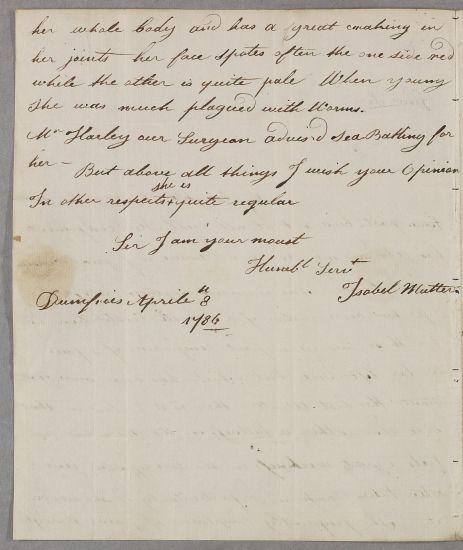 her whole body and has a great craking in
her joints her face spotes often the one side red
while the other is quite pale When young
She was much plagued with Worms.
Mr Harley our Surgeon advis'd Sea Bathing for
her —
But above all things I wish your Opinion
she is
In other respeits quite regular
Sir I am your moust
Humbl Servt
Isabel
Dumfries Aprile 8th
1784